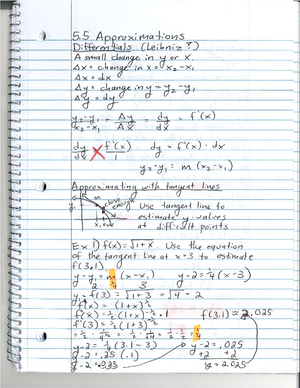 5.5 Approximations
Differentials (Leibniz?)
A small change in y or x.
Δx = change in x = x₂-x₁
Δx = dx
Δy = change in y = y₂-y₁
Δy = dy
y₂-y₁/x₂-x₁ = Δy/Δx = dy/dx = f'(x)
dy/dx f'(x)/1 dy = f'(x) · dx
y₂-y₁ = m (x₂-x₁)
Approximating with tangent lines
Use tangent line to
estimate y-values
at difficult points
Ex 1) f(x)=√1+x. Use the equation
of the tangent line at x=3 to estimate
f(3.1).
y-y₁=m(x-x₁) y-2=¼(x-3)
2 ¼ 3
f(3) = √1+3 = √4 = 2
f(x) = (1+x)^½
f'(x) = ½(1+x)^-½ · 1 f(3.1) ≈ 2.025
f'(3) = ½(1+3)^-½
y-2 = ¼(3.1-3) y-2 = .025
y-2 = .25(.1) +2 +2
y-2 = .025 y = 2.025